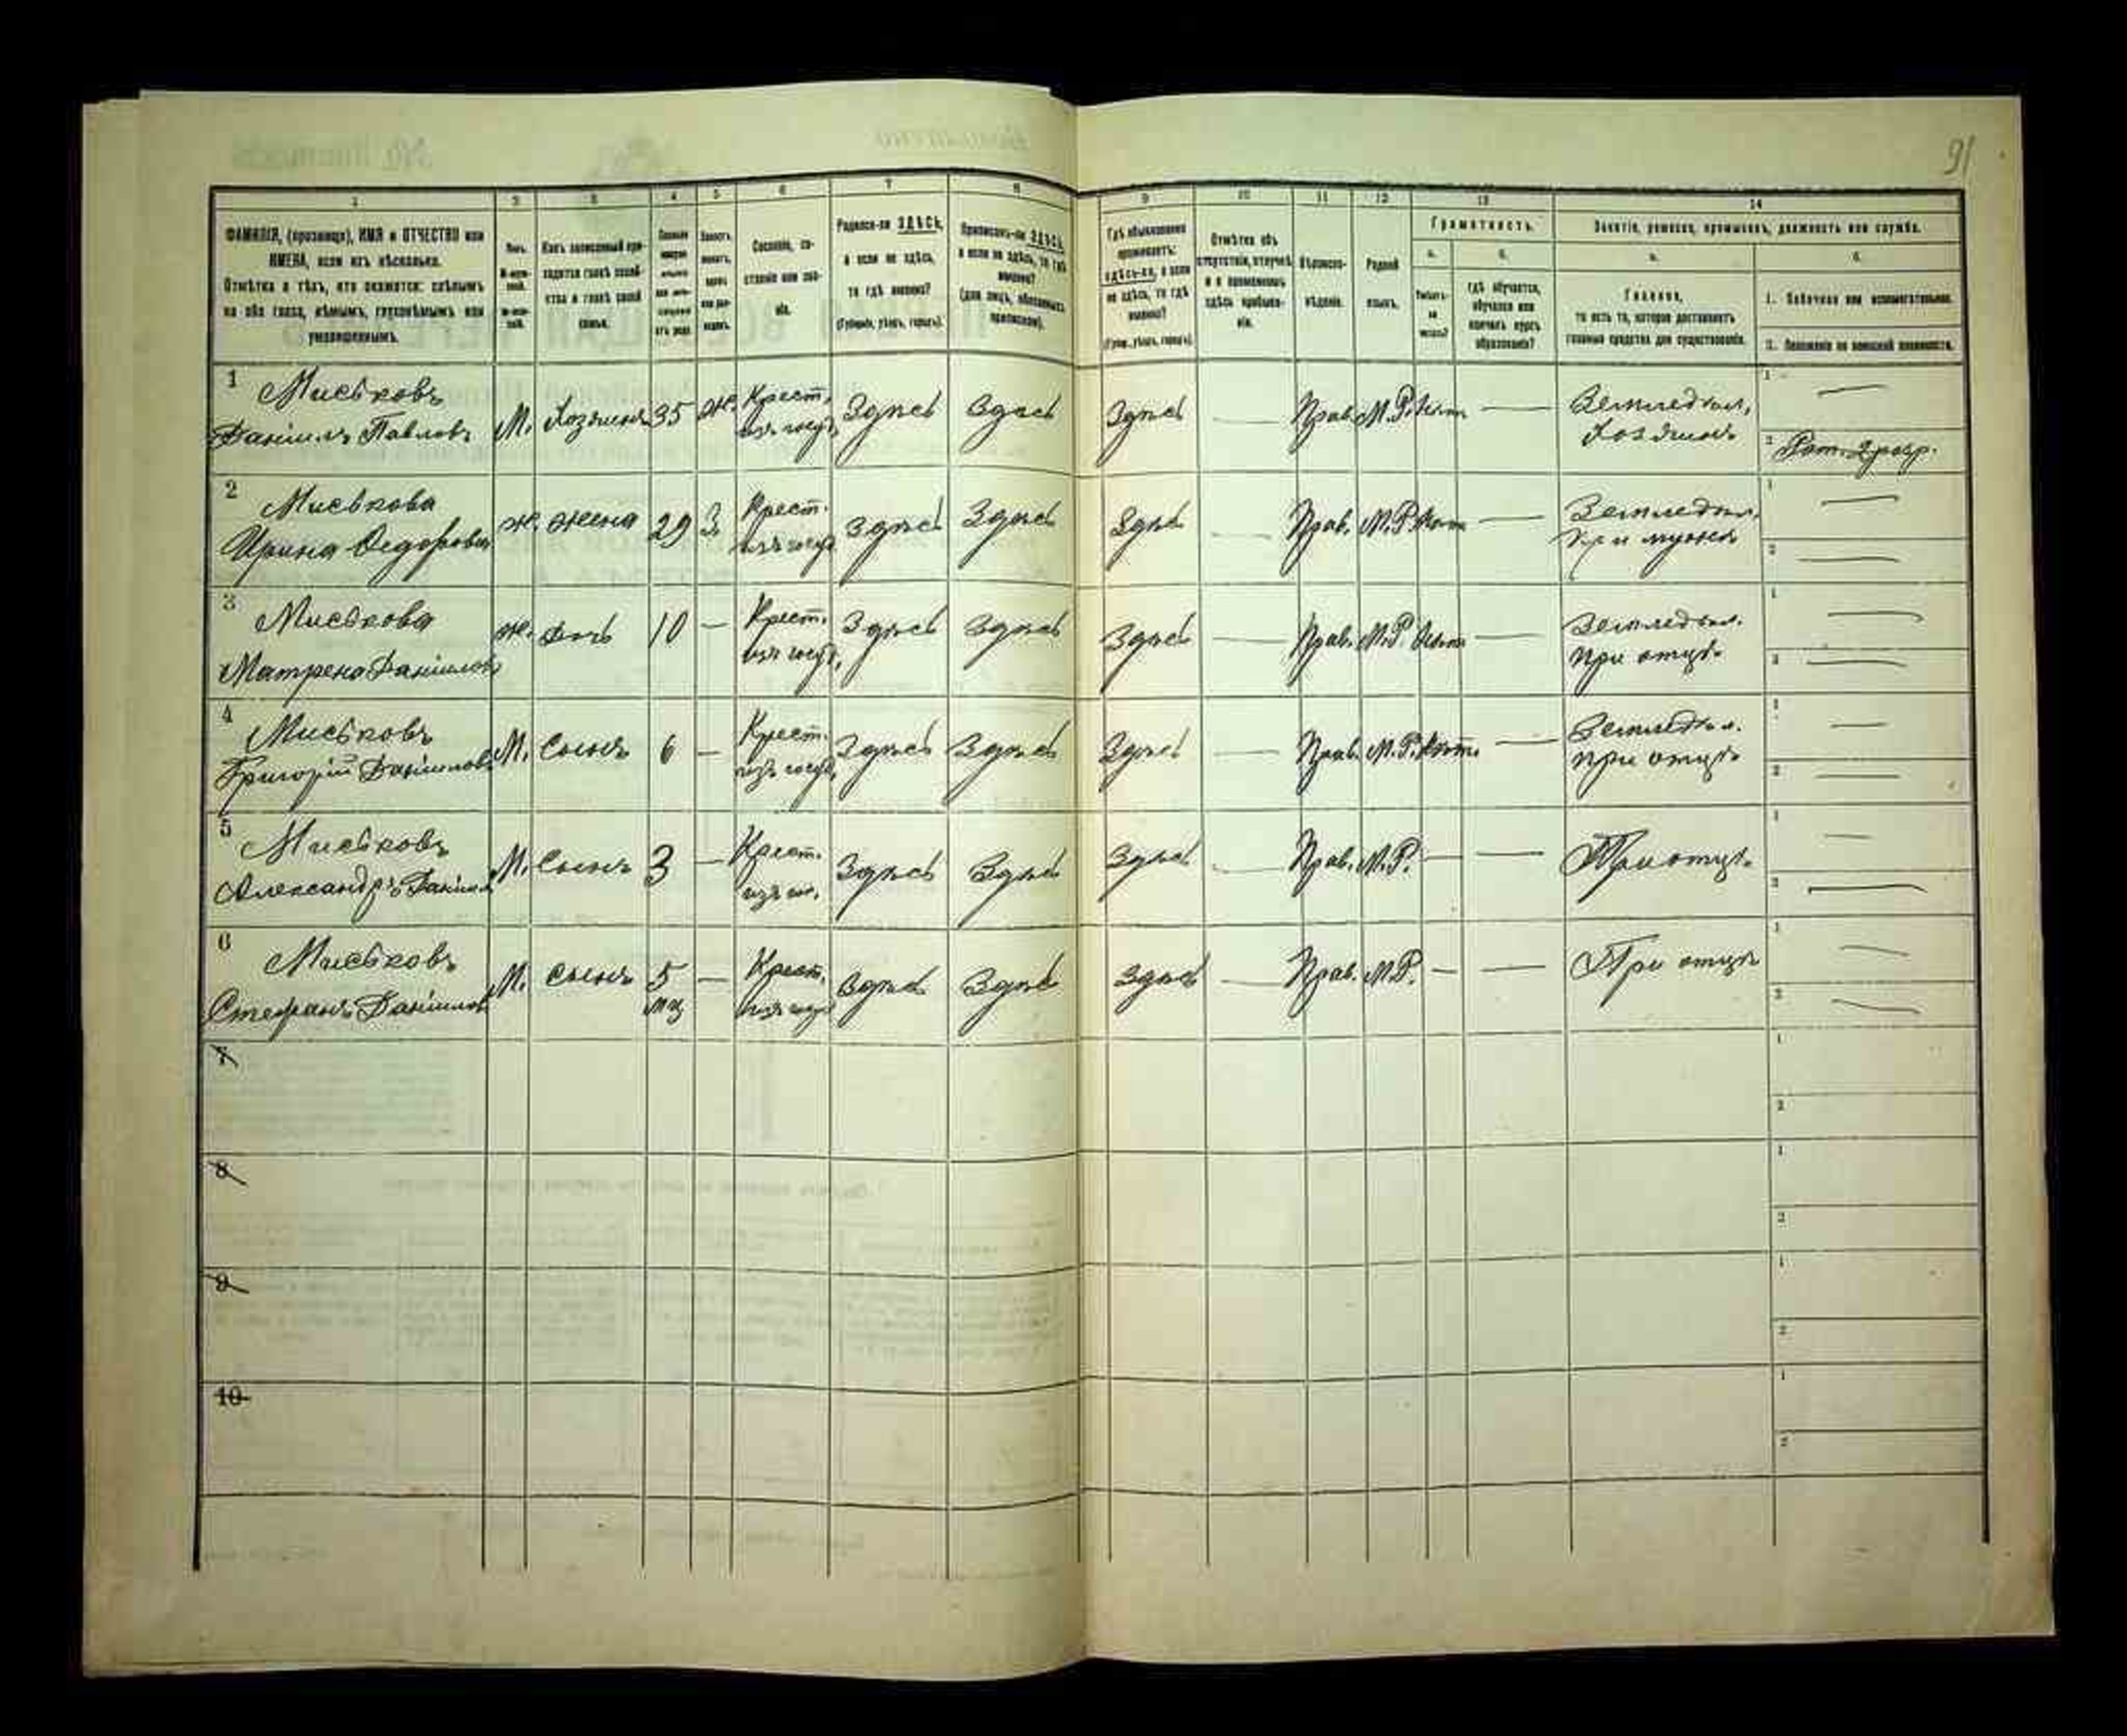 91
1 2 3 4 5 6 7 8 9 10 11 12 13 14
ФАМИЛІЯ, (прозвище), ИМЯ и ОТЧЕСТВО или
ИМЕНА, если ихъ нѣсколько.
Отмѣтка о тѣхъ, кто окажется: слѣпымъ
на оба глаза, нѣмымъ, глухонѣмымъ или
умалишеннымъ.
Полъ.
Какъ записанный при-
ходится главѣ хозяй-
ства и главѣ своей
семьи.
Сословіе, со-
стояніе или зва-
ніе.
Родился-ли ЗДѢСЬ,
а если не здѣсь,
то гдѣ именно?
(Губернія, уѣздъ, городъ).
Приписанъ-ли ЗДѢСЬ,
а если не здѣсь, то гдѣ
именно?
(для лицъ, обязанныхъ
припискою).
Гдѣ обыкновенно
проживаетъ:
здѣсь-ли, а если
не здѣсь, то гдѣ
именно?
(Губ., уѣздъ, городъ).
Отмѣтка объ
отсутствіи, отлучкѣ
и о временномъ
здѣсь пребыва-
ніи.
Вѣроиспо-
вѣданіе.
Родной
языкъ.
Грамотность.
а. б.
Умѣетъ-
ли
читать?
гдѣ обучается,
обучался или
кончилъ курсъ
образованія?
Занятіе, ремесло, промыселъ, должность или служба.
а. б.
Главное,
то есть то, которое доставляетъ
главныя средства для существованія.
1. Побочное или вспомогательное.
2. Положеніе по воинской повинности.
1 Миськовъ
Даніилъ Павловъ
М. Хозяинъ 35 Ж. Крест. Здѣсь Здѣсь Здѣсь — Прав. М.Р. — Земледѣл.
Хозяинъ
1 —
2
2 Миськова
Ирина Федорова
ж. жена 29 З. Крест. Здѣсь Здѣсь Здѣсь — Прав. М.Р. — Земледѣл.
при мужѣ
1 —
2 —
3 Миськова
Матрена Даніилов
ж. дочь 10 — Крест. Здѣсь Здѣсь Здѣсь — Прав. М.Р. — Земледѣл.
при отцѣ
1 —
2 —
4 Миськовъ
Григорій Даніилов
М. Сынъ 6 — Крест. Здѣсь Здѣсь Здѣсь — Прав. М.Р. — Земледѣл.
при отцѣ
1 —
2 —
5 Миськовъ
Александръ Даніил
М. Сынъ 3 — Крест. Здѣсь Здѣсь Здѣсь — Прав. М.Р. — — При отцѣ
1 —
2 —
6 Миськовъ
Стефанъ Даніилов
М. сынъ 5 — Крест. Здѣсь Здѣсь Здѣсь — Прав. М.Р. — — При отцѣ
мц
1 —
2 —
7
1
2
8
1
2
9
1
2
10
1
2